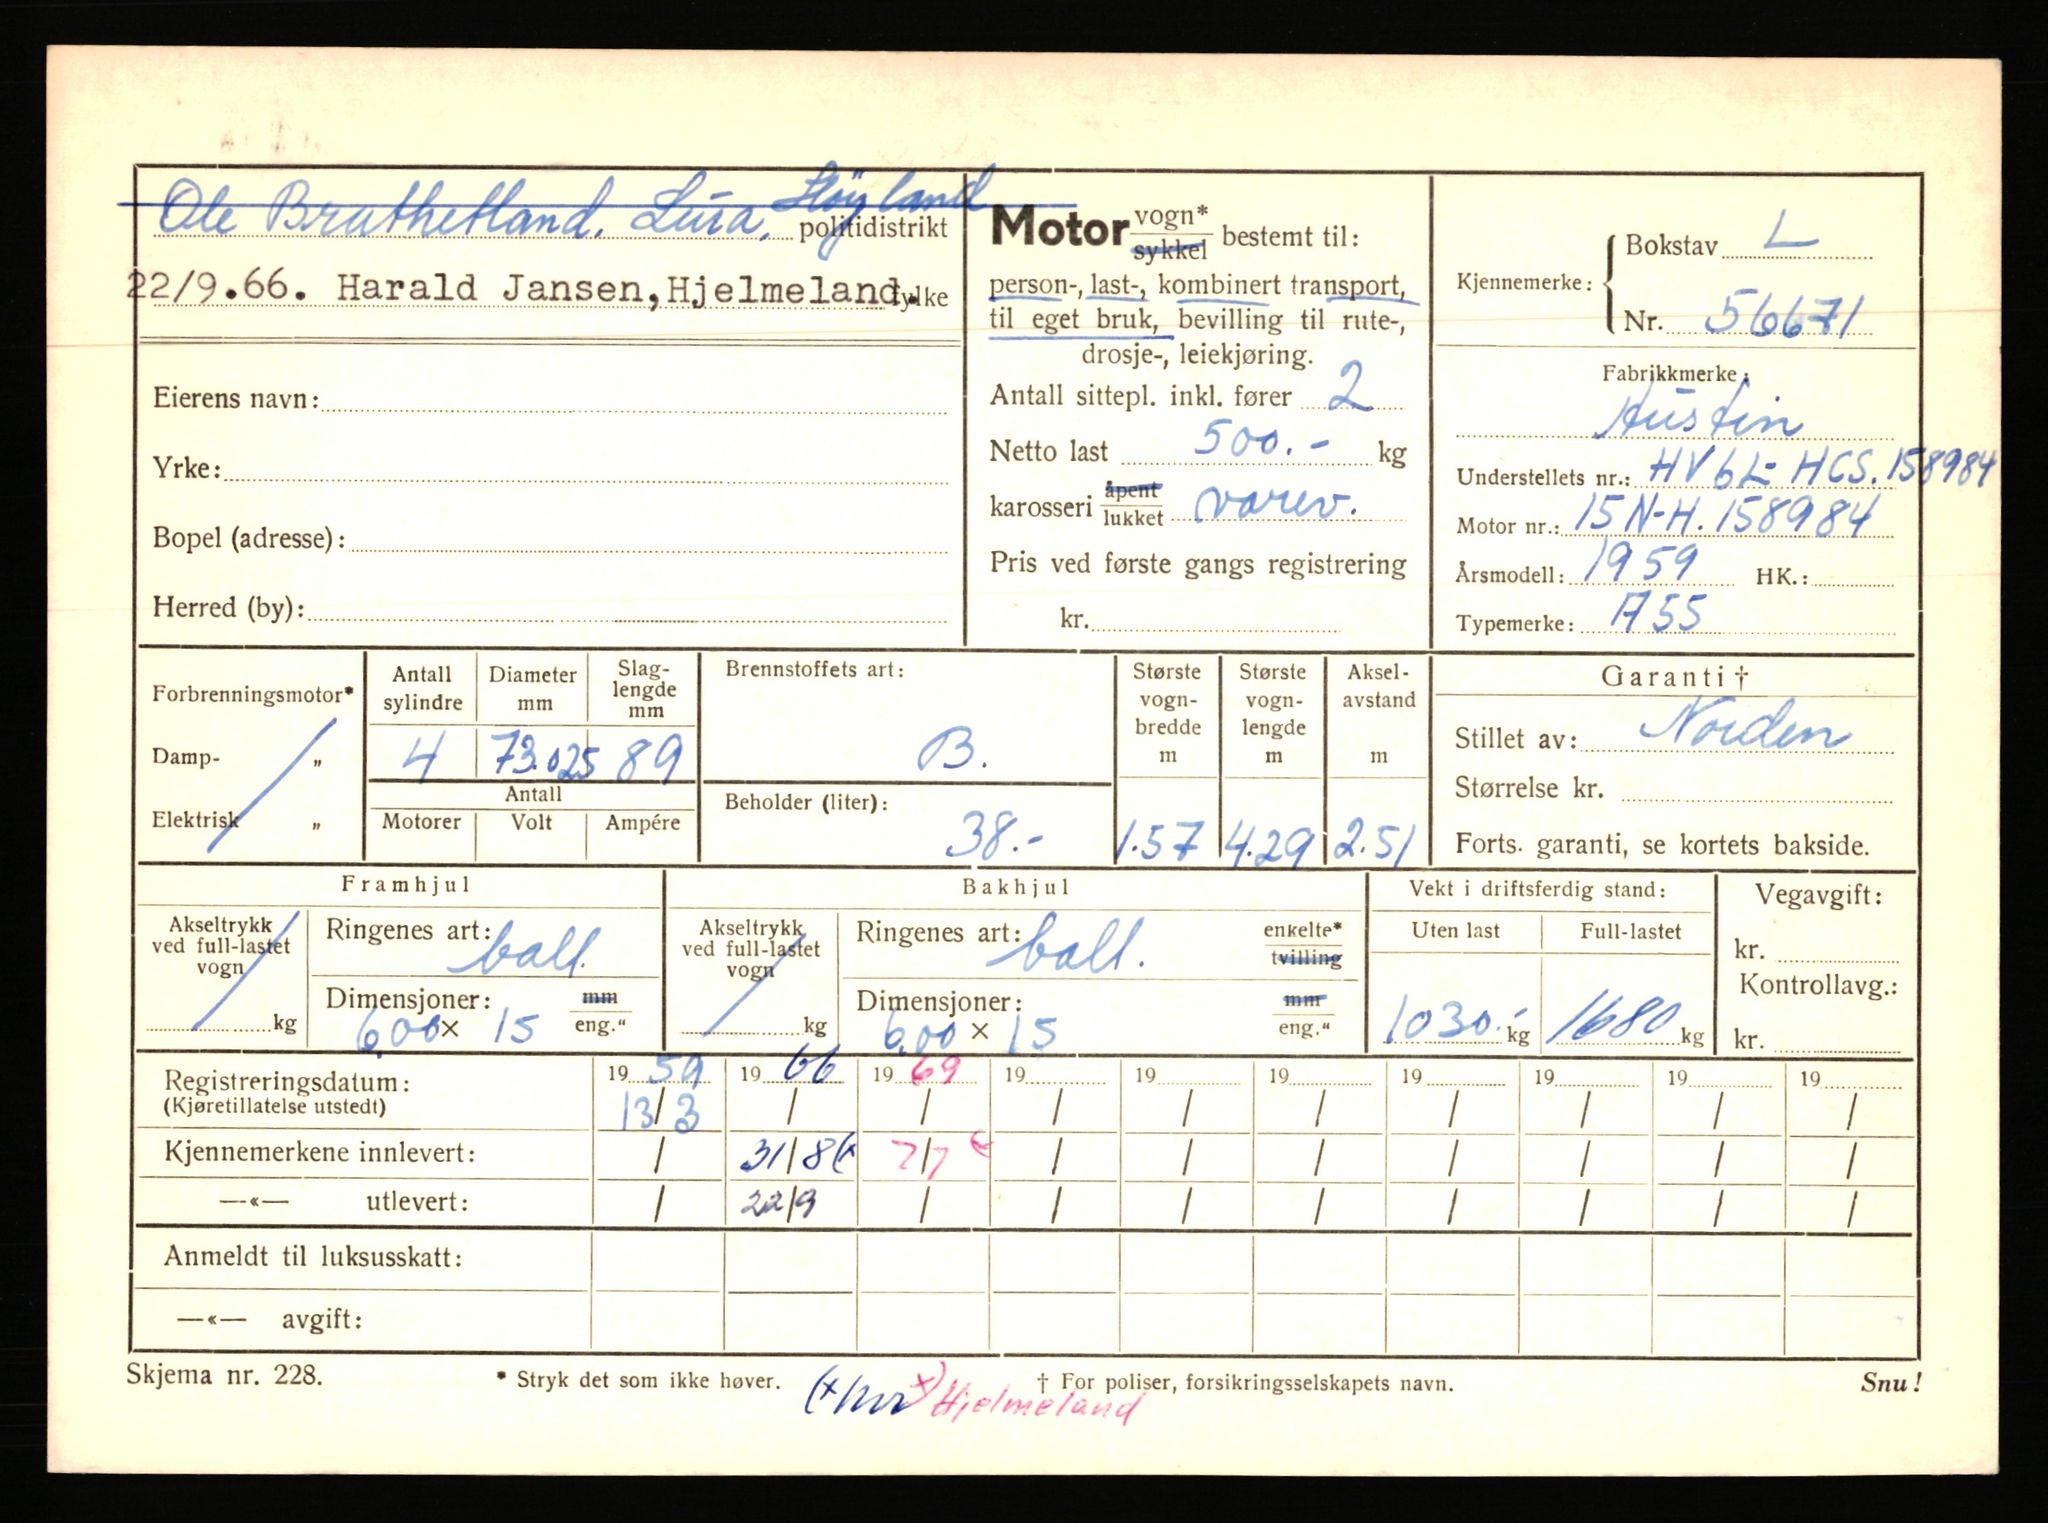 Ole Bruthetland, Lura, Høyland politidistrikt
22/9.66. Harald Jansen, Hjelmeland. fylke
Eierens navn:
Yrke:
Bopel (adresse):
Herred (by):
Motor vogn* sykkel bestemt til:
person-, last-, kombinert transport,
til eget bruk, bevilling til rute-,
drosje-, leiekjøring.
Antall sittepl. inkl. fører 2
Netto last 500.- kg
karosseri åpent lukket varev.
Pris ved første gangs registrering
kr.
Kjennemerke: Bokstav L
Nr. 56671
Fabrikkmerke:
Austin
Understellets nr.: HV6L-HCS.158984
Motor nr.: 15N-H.158984
Årsmodell: 1959 HK.:
Typemerke: A55
Forbrenningsmotor*
Damp- „
Elektrisk „
Antall sylindre Diameter mm Slaglengde mm
4 73.025 89
Antall
Motorer Volt Ampére
Brennstoffets art:
B.
Beholder (liter):
38.-
Største vognbredde m Største vognlengde m Akselavstand m
1.57 4.29 2.51
Garanti †
Stillet av: Norden
Størrelse kr.
Forts. garanti, se kortets bakside.
Framhjul
Akseltrykk ved full-lastet vogn kg
Ringenes art: ball.
Dimensjoner: mm eng."
6.00 x 15
Bakhjul
Akseltrykk ved full-lastet vogn kg
Ringenes art: ball. enkelte* tvilling
Dimensjoner: mm eng."
6.00 x 15
Vekt i driftsferdig stand:
Uten last Full-lastet
1030.- kg 1680 kg
Vegavgift:
kr.
Kontrollavg.:
kr.
Registreringsdatum: 19 59 19 66 19 69 19 19 19 19 19 19 19
(Kjøretillatelse utstedt) 13/3 / / / / / / / / /
Kjennemerkene innlevert: / 31/8 (x 7/7 x / / / / / / /
—«— utlevert: / 22/9 / / / / / / / /
Anmeldt til luksusskatt:
—«— avgift:
Skjema nr. 228. * Stryk det som ikke høver. † For poliser, forsikringsselskapets navn. Snu!
x) Hjelmeland